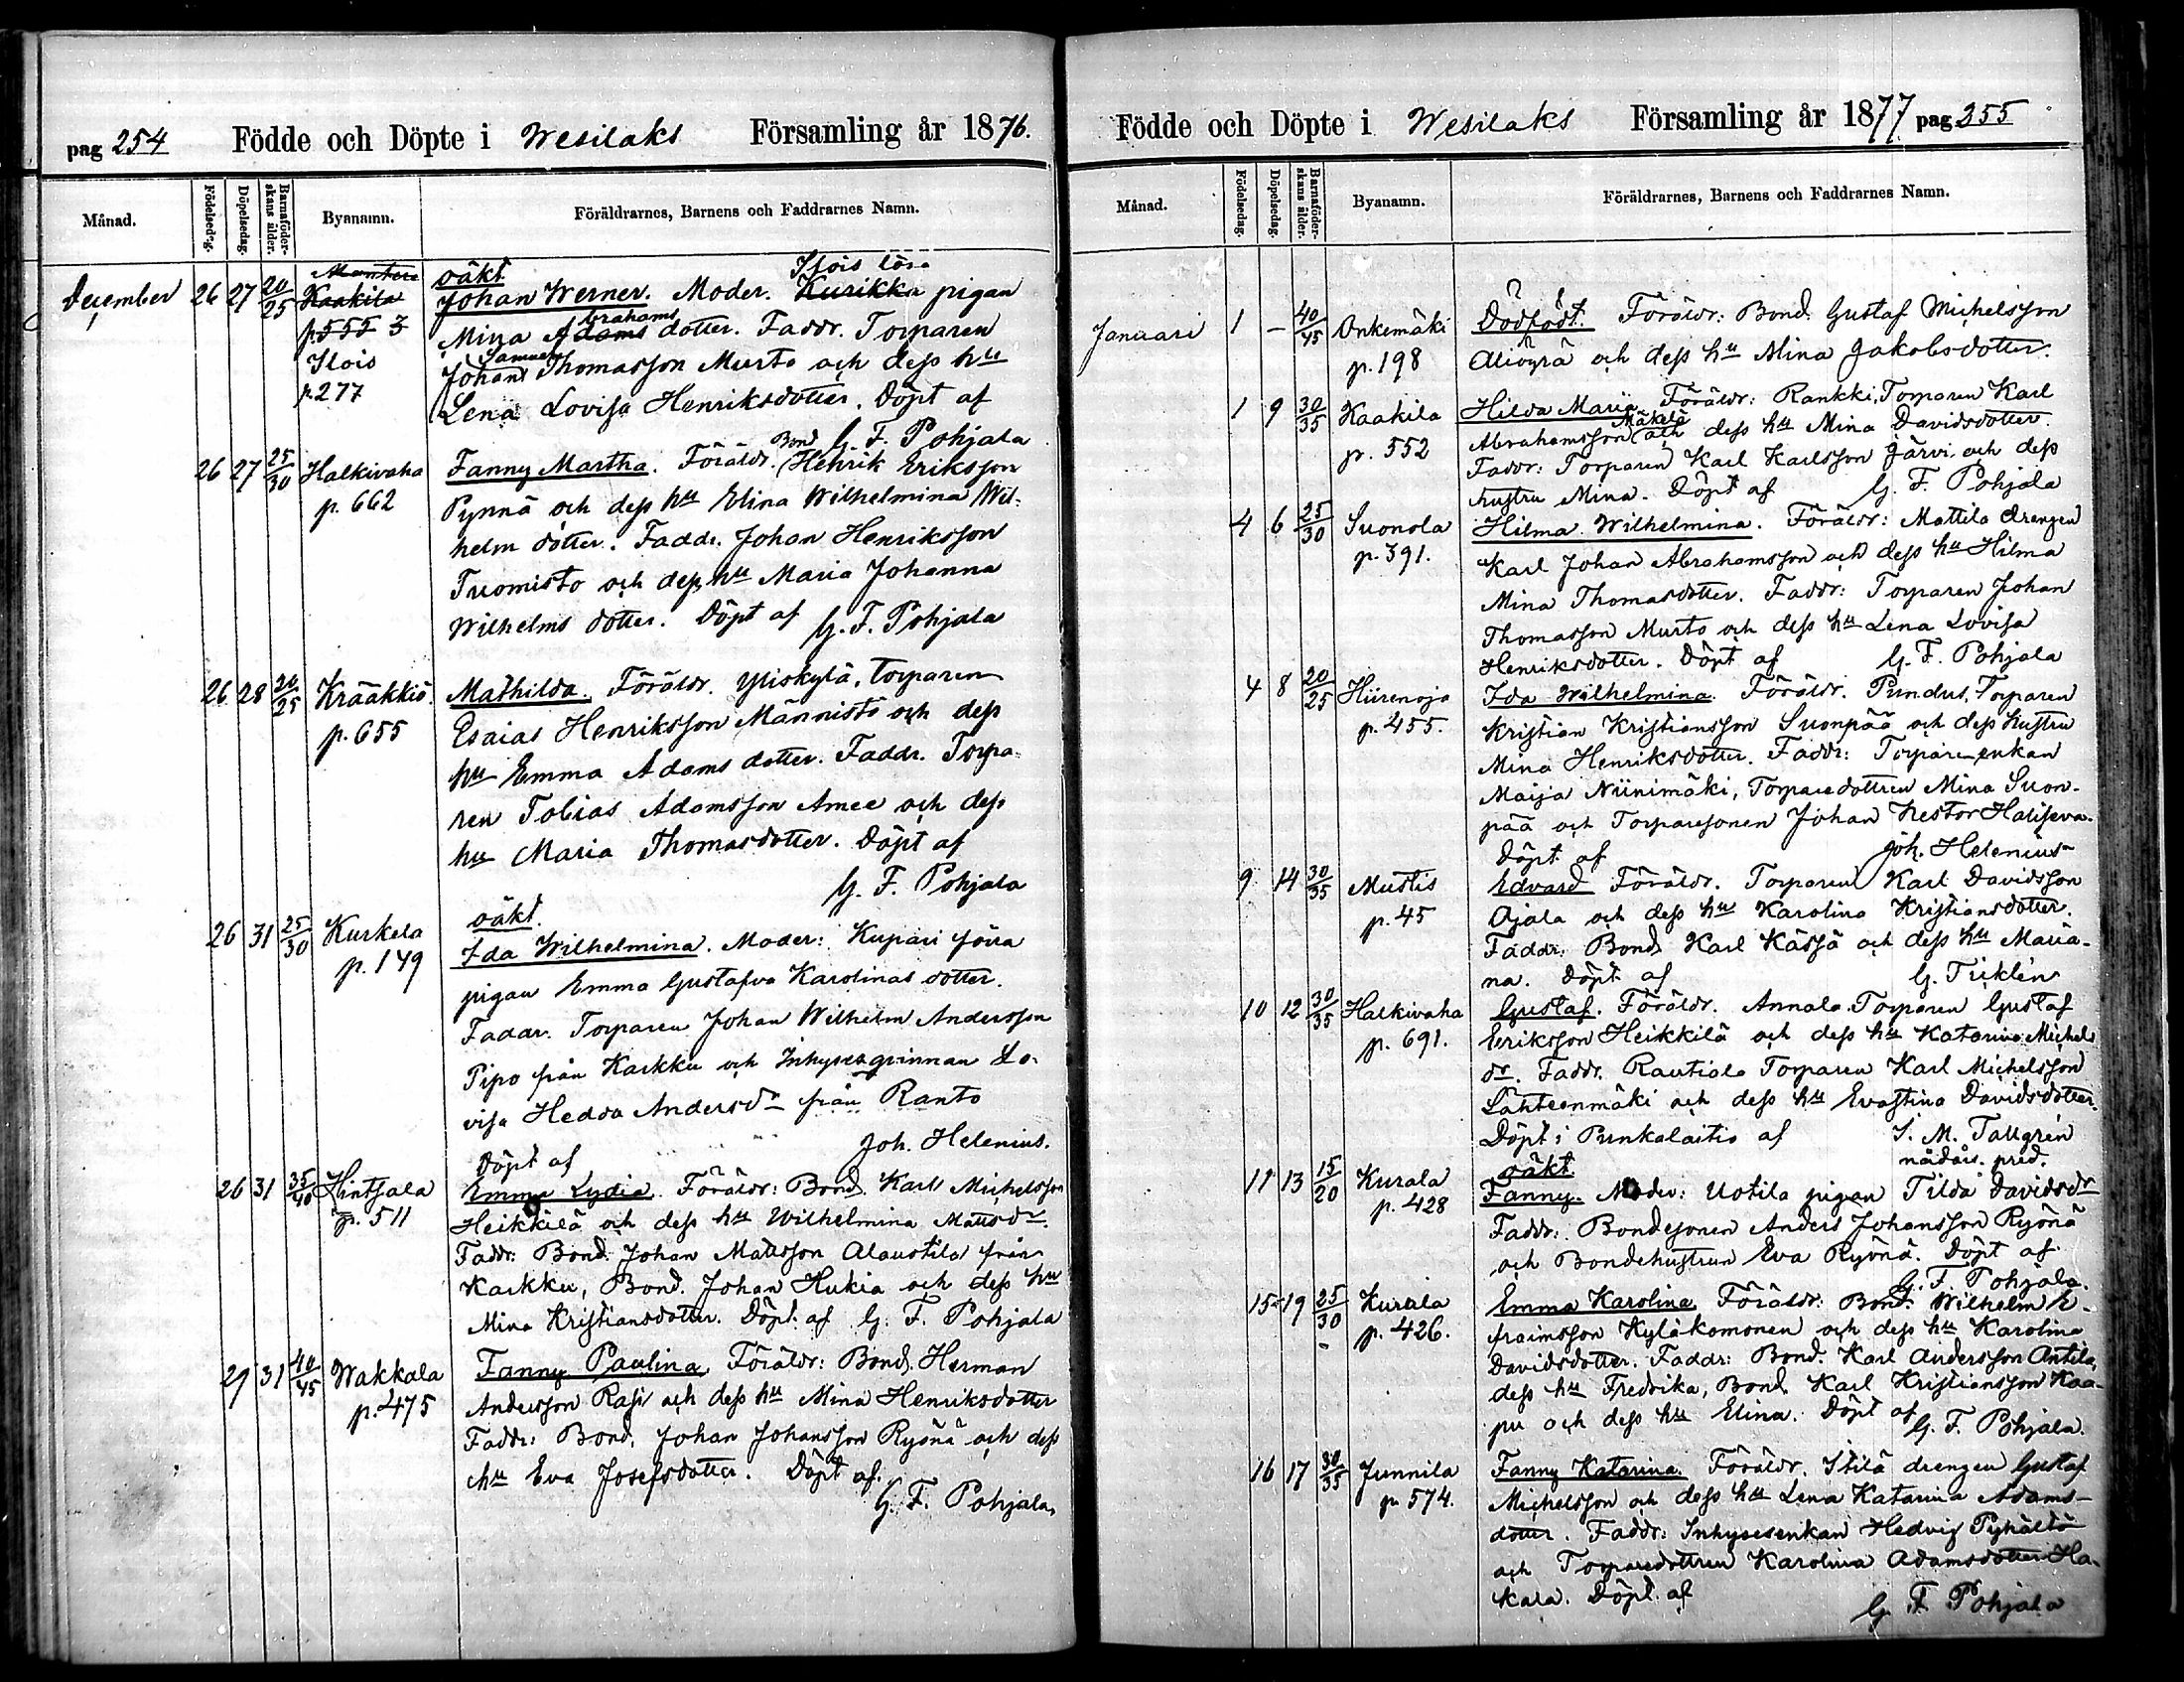 pag 254 Födde och Döpte i Wesilaks Församling år 1876.
Månad. Födelsedag. Döpelsedag. Barnaföderskans ålder. Byanamn. Föräldrarnes, Barnens och Faddrarnes Namn.
oäkt Ilois lös-
December 26 27 20/25 Kaakila Johan Werner. Moder. Kurikka pigan
p. 555 Abrahams
Mina Adams dotter. Faddr. Torparen
Ilois Samuel
Johan Thomasson Murto och dess hu
p. 277
Lena Lovisa Henriksdotter. Döpt af
G. F. Pohjala
26 27 25/30 Halkivaha Fanny Martha. Föräldr. Bond. Henrik Eriksson
p. 662 Pynnä och dess hu Elina Wilhelmina Wil-
helm dotter. Faddr. Johan Henriksson
Tuomisto och dess hu Maria Johanna
Wilhelms dotter. Döpt af G. F. Pohjala
26 28 20/25 Krääkkiö Mathilda. Föräldr. Yliskylä, torparen
p. 655 Esaias Henriksson Männistö och dess
hu Emma Adams dotter. Faddr. Torpa-
ren Tobias Adamsson Amee och dess
hu Maria Thomasdotter. Döpt af
G. F. Pohjala
oäkt.
26 31 25/30 Kurkela Ida Wilhelmina. Moder: Kupari förra
p. 149 pigan Emma Gustafva Karolinas dotter.
Faddr. Torparen Johan Wilhelm Andersson
Pipo från Karkku och Inhysesqvinnan Lo-
visa Hedda Andersdr från Ranto
Döpt af Joh. Helenius.
26 31 35/40 Hintsala Emma Lydia. Föräldr: Bond. Karl Michelsson
p. 511 Heikkilä och dess hu Wilhelmina Mattsdr.
Faddr: Bond. Johan Mattsson Alaustila från
Karkku, Bond. Johan Hukia och dess hu
Mina Kristiansdotter. Döpt af G. F. Pohjala
29 31 40/45 Wakkala Fanny Paulina. Föräldr: Bond. Herman
p. 475 Andersson Rasi och dess hu Mina Henriksdotter
Faddr: Bond. Johan Johansson Ryönä och dess
hu Eva Josefsdotter. Döpt af
G. F. Pohjala
Födde och Döpte i Wesilaks Församling år 1877 pag 255
Månad. Födelsedag. Döpelsedag. Barnaföderskans ålder. Byanamn. Föräldrarnes, Barnens och Faddrarnes Namn.
Januari 1 – 40/45 Onkemäki Dödfödt. Föräldr: Bond. Gustaf Michelsson
p. 198 och dess hu Mina Jakobsdotter.
1 9 30/35 Kaakila Hilda Maria. Föräldr: Rankki, Torparen Karl
p. 552 Abrahamsson Mäkelä och dess hu Mina Davidsdotter.
Faddr: Torparen Karl Karlsson Järvi och dess
hustru Mina. Döpt af G. F. Pohjala
4 6 25/30 Suonola Hilma Wilhelmina. Föräldr: Mattila drengen
p. 391. Karl Johan Abrahamsson och dess hu Hilma
Mina Thomasdotter. Faddr: Torparen Johan
Thomasson Murto och dess hu Lena Lovisa
Henriksdotter. Döpt af G. F. Pohjala
4 8 20/25 Hiirenoja Ida Wilhelmina. Föräldr. Pundus, Torparen
p. 455. Kristian Kristiansson Suonpää och dess hustru
Mina Henriksdotter. Faddr: Torpareenkan
Maija Niinimäki, Torparedottren Mina Suon-
pää och Torparesonen Johan Nestor
Döpt af Joh. Helenius
9 14 30/35 Mustis Edvard Föräldr. Torparen Karl Davidsson
p. 45 Ojala och dess hu Karolina Kristiansdotter.
Faddr. Bond. Karl Kässä och dess hu Maria-
na. Döpt af G. Ticklén
10 12 30/35 Halkivaha Gustaf. Föräldr. Annala Torparen Gustaf
p. 691. Eriksson Heikkilä och dess hu Katarina Michels
dr. Faddr. Rautiala Torparen Karl Michelsson
Lähteenmäki och dess hu Evastina Davidsdotter.
Döpt i Punkalaitio af S. M. Tallgrén
nådårs. pred.
oäkt.
11 13 15/20 Kurala Fanny. Moder: Uotila pigan Tilda Davidsdr
p. 428 Faddr: Bondesonen Anders Johansson Ryönä
och Bondehustrun Eva Ryönä. Döpt af
G. F. Pohjala.
15 19 25/30 Kurala Emma Karolina Föräldr: Bond. Wilhelm E-
p. 426. fraimsson Kyläkomonen och dess hu Karolina
Davidsdotter. Faddr: Bond. Karl Andersson Antila,
dess hu Fredrika, Bond. Karl Kristiansson Kaa-
pu och dess hu Elina. Döpt af G. F. Pohjala.
16 17 30/35 Junnila Fanny Katarina. Föräldr. Itilä drengen Gustaf
p. 574. Michelsson och dess hu Lena Katarina Adams-
dotter. Faddr: Inhysesenkan Hedvig Pyhältö
och Torparedottren Karolina Adamsdotter Ha-
kara. Döpt af
G. F. Pohjala